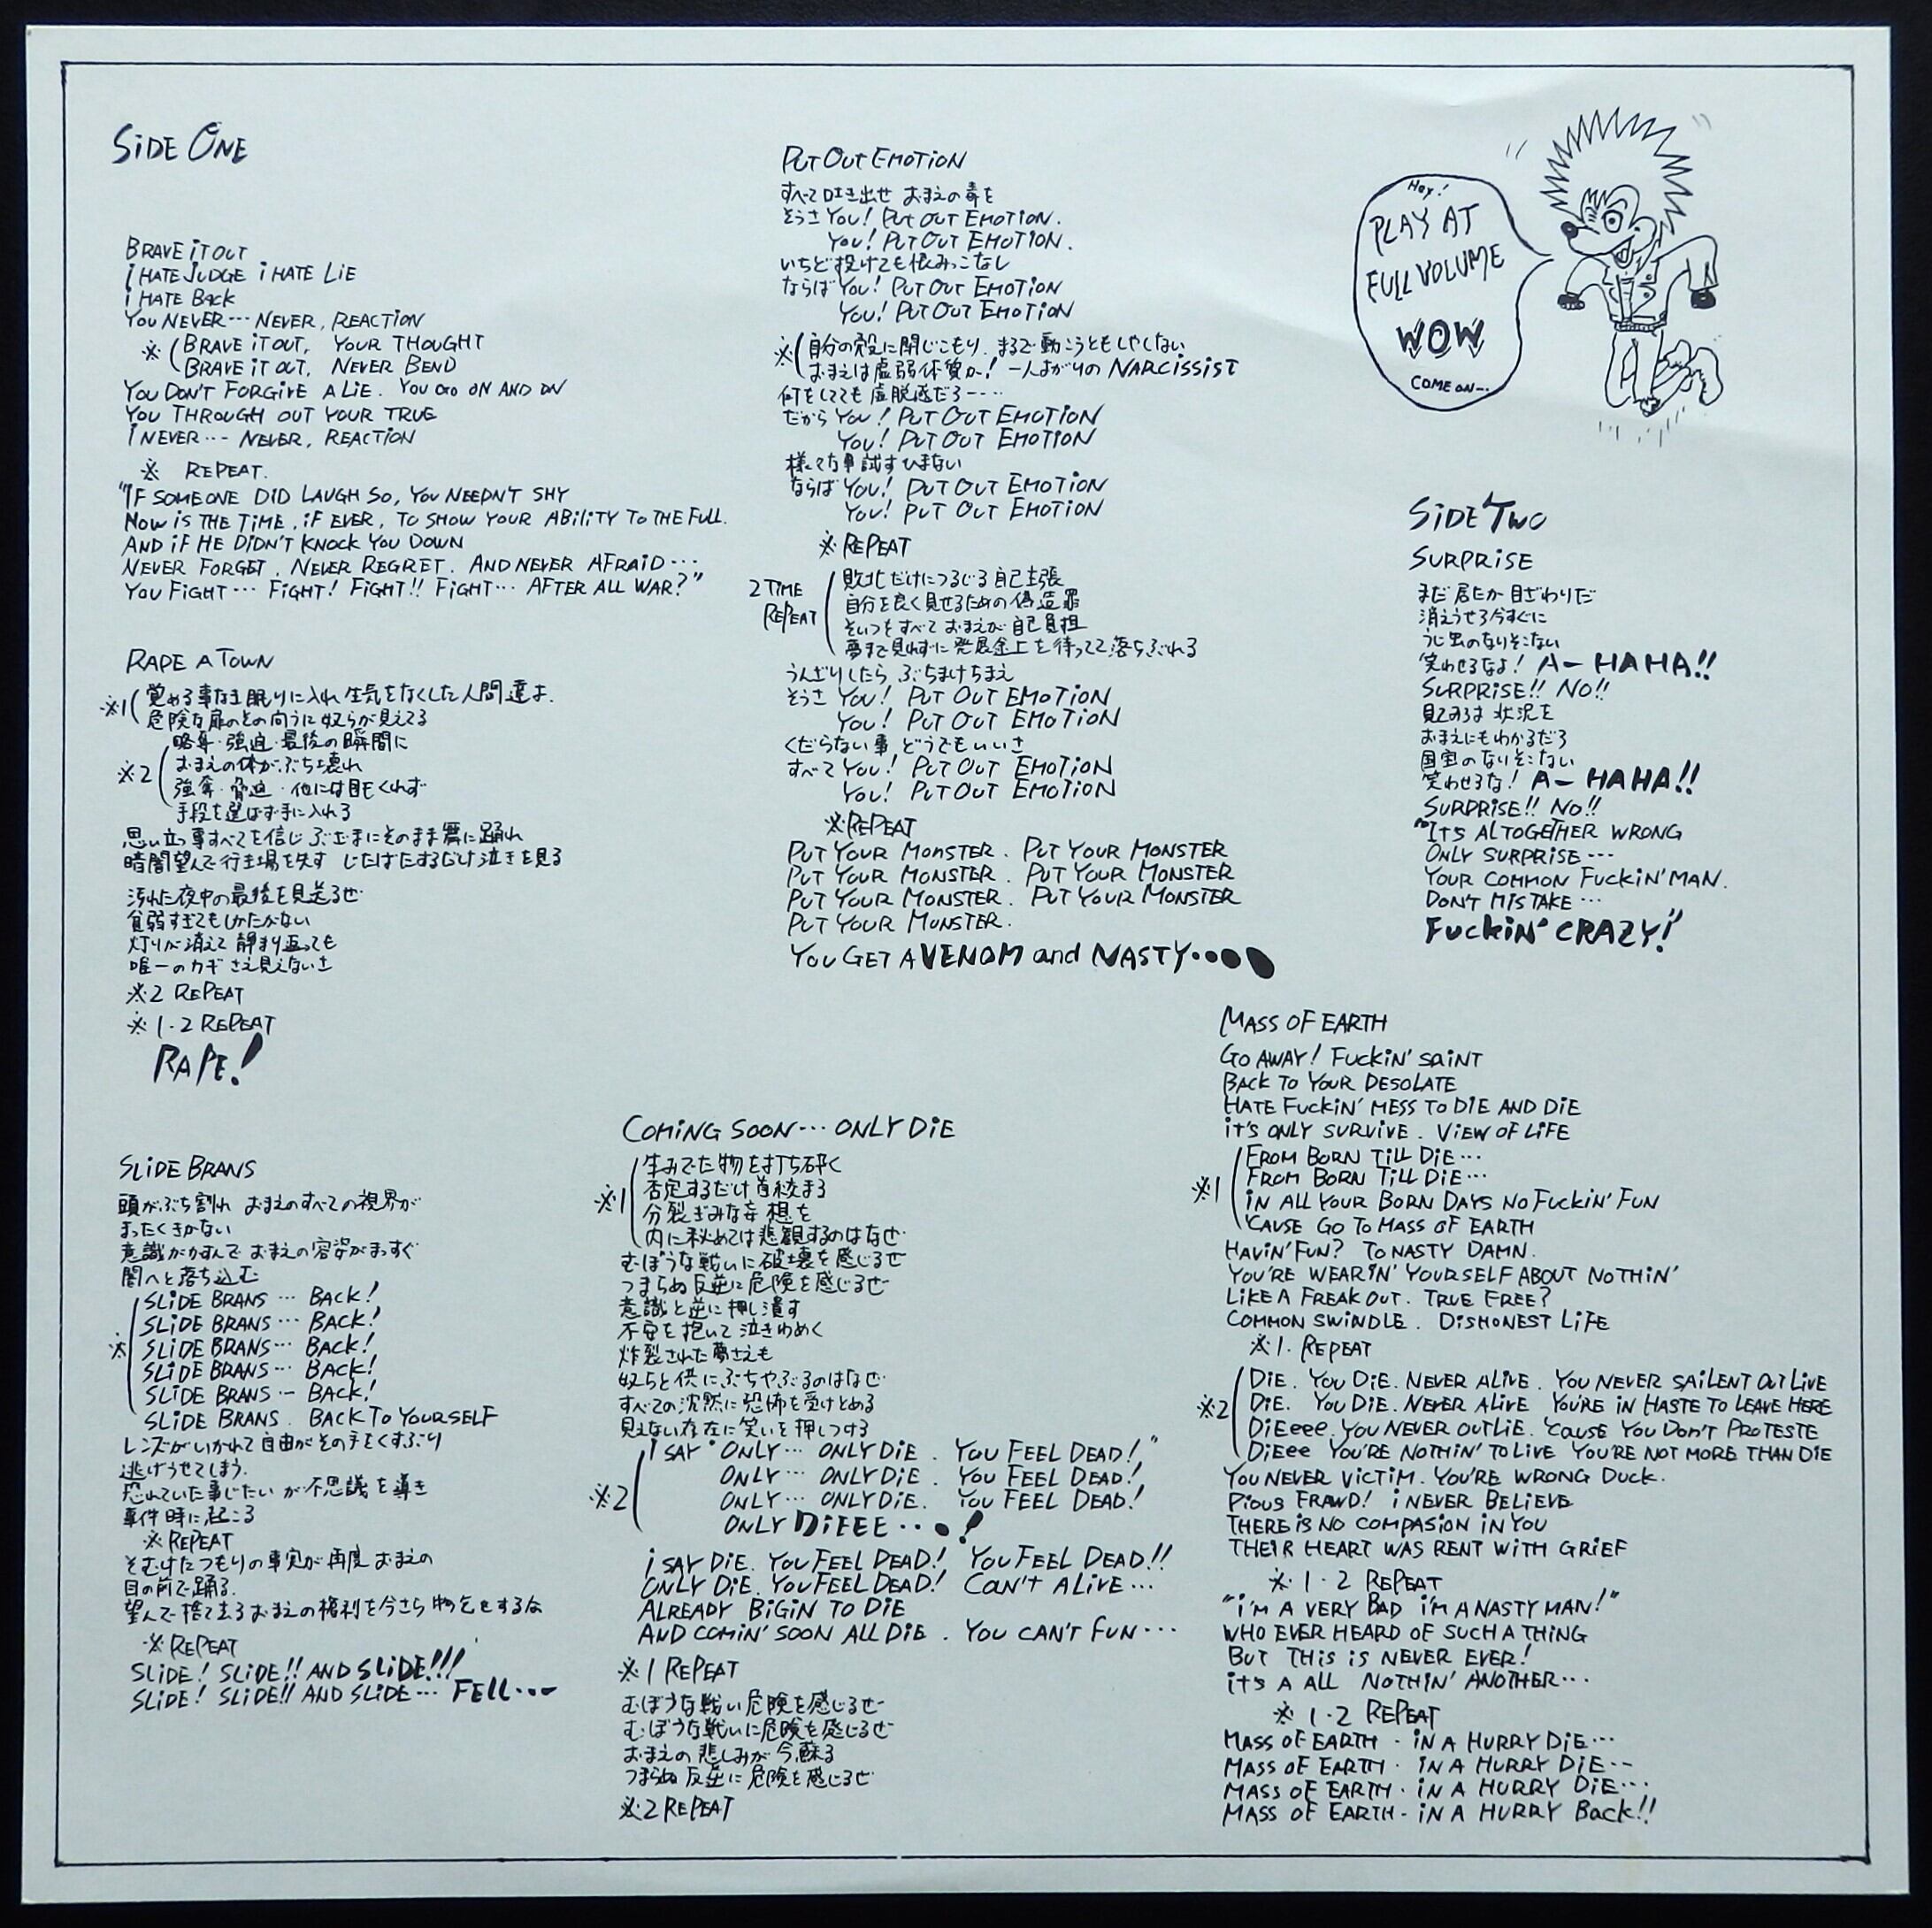 SIDE ONE
BRAVE IT OUT
I HATE JUDGE I HATE LIE
I HATE BACK
YOU NEVER… NEVER, REACTION
※(BRAVE IT OUT, YOUR THOUGHT
BRAVE IT OUT, NEVER BEND
YOU DON'T FORGIVE A LIE. YOU GO ON AND ON
YOU THROUGH OUT YOUR TRUE
I NEVER… NEVER, REACTION
※ REPEAT.
"IF SOMEONE DID LAUGH SO, YOU NEEDN'T SHY
NOW IS THE TIME, IF EVER, TO SHOW YOUR ABILITY TO THE FULL.
AND IF HE DIDN'T KNOCK YOU DOWN
NEVER FORGET. NEVER REGRET. AND NEVER AFRAID…
YOU FIGHT… FIGHT! FIGHT!! FIGHT… AFTER ALL WAR?"
RAPE A TOWN
※1(覚める事なき眠りに入れ 生気をなくした人間達よ.
危険な扉のその向うに奴らが見えてる
略奪・強迫・最後の瞬間に
※2(おまえの体がぶち壊れ
強奪・脅迫・他には目もくれず
手段を選ばず手に入れる
思い立つ事すべてを信じ ぶざまにそのまま舞に踊れ
暗闇望んで行き場を失す じたばたするだけ泣きを見る
汚れた夜中の最後を見送るぜ
貧弱すぎてもしかたがない
灯りが消えて 静まり返っても
唯一のカギさえ見えないさ
※2 REPEAT
※1・2 REPEAT
RAPE!
SLIDE BRANS
頭がぶち割れ おまえのすべての視界が
まったくきかない
意識がかすんで おまえの容姿がまっすぐ
闇へと落ち込む
※(SLIDE BRANS… BACK!
SLIDE BRANS… BACK!
SLIDE BRANS… BACK!
SLIDE BRANS… BACK!
SLIDE BRANS… BACK!
SLIDE BRANS. BACK TO YOURSELF
レンズがいかれて自由がその手をくすぶり
逃げうせてしまう.
恐れていた事じたい が不思議を導き
事件時に起こる
※REPEAT
そむけたつもりの事実が再度おまえの
目の前で踊る.
望んで捨て去るおまえの権利を今さら物乞いするな
※REPEAT
SLIDE! SLIDE!! AND SLIDE!!!
SLIDE! SLIDE!! AND SLIDE… FELL...
PUT OUT EMOTION
すべて吐き出せ おまえの毒を
そうさ YOU! PUT OUT EMOTION.
YOU! PUT OUT EMOTION.
いちど投げても恨みっこなし
ならば YOU! PUT OUT EMOTION
YOU! PUT OUT EMOTION
※(自分の殻に閉じこもり. まるで動こうともしやしない
おまえは虚弱体質か! 一人よがりのNARCISSIST
何をしてても虚脱感だろー…
だから YOU! PUT OUT EMOTION
YOU! PUT OUT EMOTION
様々な事試すひまない
ならば YOU! PUT OUT EMOTION
YOU! PUT OUT EMOTION
※REPEAT
2 TIME REPEAT(敗北だけにつるじる自己主張
自分を良く見せるための偽造罪
そいつをすべておまえが自己負担
夢まで見れずに発展金上を待ってて落ちぶれる
うんざりしたら ぶちまけちまえ
そうさ YOU! PUT OUT EMOTION
YOU! PUT OUT EMOTION
くだらない事 どうでもいいさ
すべて YOU! PUT OUT EMOTION
YOU! PUT OUT EMOTION
※REPEAT
PUT YOUR MONSTER. PUT YOUR MONSTER
PUT YOUR MONSTER. PUT YOUR MONSTER
PUT YOUR MONSTER. PUT YOUR MONSTER
PUT YOUR MONSTER.
YOU GET A VENOM and NASTY.....
COMING SOON… ONLY DIE
※1(生みでた物を打ち砕く
否定するだけ首絞まる
分裂ぎみな妄想を
内に秘めては悲観するのはなぜ
むぼうな戦いに破壊を感じるぜ
つまらぬ反逆に危険を感じるぜ
意識と逆に押し潰す
不安を抱いて泣きわめく
炸裂された夢さえも
奴らと供にぶちやぶるのはなぜ
すべての沈黙に恐怖を受けとめる
見えない存在に笑いを押しつける
※2(I SAY "ONLY… ONLY DIE. YOU FEEL DEAD!"
ONLY… ONLY DIE. YOU FEEL DEAD!
ONLY… ONLY DIE. YOU FEEL DEAD!
ONLY DIEEE...!
I SAY DIE. YOU FEEL DEAD! YOU FEEL DEAD!!
ONLY DIE. YOU FEEL DEAD! CAN'T ALIVE…
ALREADY BIGIN TO DIE
AND COMIN' SOON ALL DIE. YOU CAN'T FUN…
※1 REPEAT
むぼうな戦い危険を感じるぜ
むぼうな戦いに危険を感じるぜ
おまえの悲しみが今蘇る
つまらぬ反逆に危険を感じるぜ
※2 REPEAT
Hey!
PLAY AT
FULL VOLUME
WOW
COME ON…
SIDE TWO
SURPRISE
まだ居たか目ざわりだ
消えうせろ今すぐに
うじ虫のなりそこない
笑わせるなよ! A-HAHA!!
SURPRISE!! NO!!
見てみろよ状況を
おまえにもわかるだろ
国宝のなりそこない
笑わせるな! A-HAHA!!
SURPRISE!! NO!!
"IT'S ALTOGETHER WRONG
ONLY SURPRISE…
YOUR COMMON FUCKIN' MAN.
DON'T MISTAKE…
FUCKIN' CRAZY!"
MASS OF EARTH
GO AWAY! FUCKIN' SAINT
BACK TO YOUR DESOLATE
HATE FUCKIN' MESS TO DIE AND DIE
IT'S ONLY SURVIVE. VIEW OF LIFE
※1(FROM BORN TILL DIE…
FROM BORN TILL DIE…
IN ALL YOUR BORN DAYS NO FUCKIN' FUN
'CAUSE GO TO MASS OF EARTH
HAVIN' FUN? TO NASTY DAMN.
YOU'RE WEARIN' YOURSELF ABOUT NOTHIN'
LIKE A FREAK OUT. TRUE FREE?
COMMON SWINDLE. DISHONEST LIFE
※1. REPEAT
※2(DIE. YOU DIE. NEVER ALIVE. YOU NEVER SAILENT OUT LIVE
DIE. YOU DIE. NEVER ALIVE YOU'RE IN HASTE TO LEAVE HERE
DIEeee. YOU NEVER OUTLIE. 'CAUSE YOU DON'T PROTESTE
DIEee YOU'RE NOTHIN' TO LIVE YOU'RE NOT MORE THAN DIE
YOU NEVER VICTIM. YOU'RE WRONG DUCK.
PIOUS FRAWD! I NEVER BELIEVE
THERE IS NO COMPASION IN YOU
THEIR HEART WAS RENT WITH GRIEF
※1・2 REPEAT
"I'M A VERY BAD I'M A NASTY MAN!"
WHO EVER HEARD OF SUCH A THING
BUT THIS IS NEVER EVER!
IT'S A ALL NOTHIN' ANOTHER…
※1・2 REPEAT
MASS OF EARTH・IN A HURRY DIE…
MASS OF EARTH・IN A HURRY DIE…
MASS OF EARTH・IN A HURRY DIE…
MASS OF EARTH・IN A HURRY BACK!!